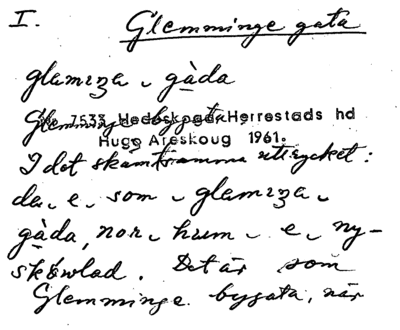 I. Glemminge gata
glamıŋa ˬ gàda
Glemminge bygata,
7533 Hedeskoga, Herrestads hd
Hugo Areskoug 1961.
I det skämtsamma uttrycket:
da ˬ e ˬ som ˬ glamıŋa ˬ
gàda, nor ˬ hum ˬ e ˬ ny-
skǿwlad. Det är som
Glemminge bygata, när